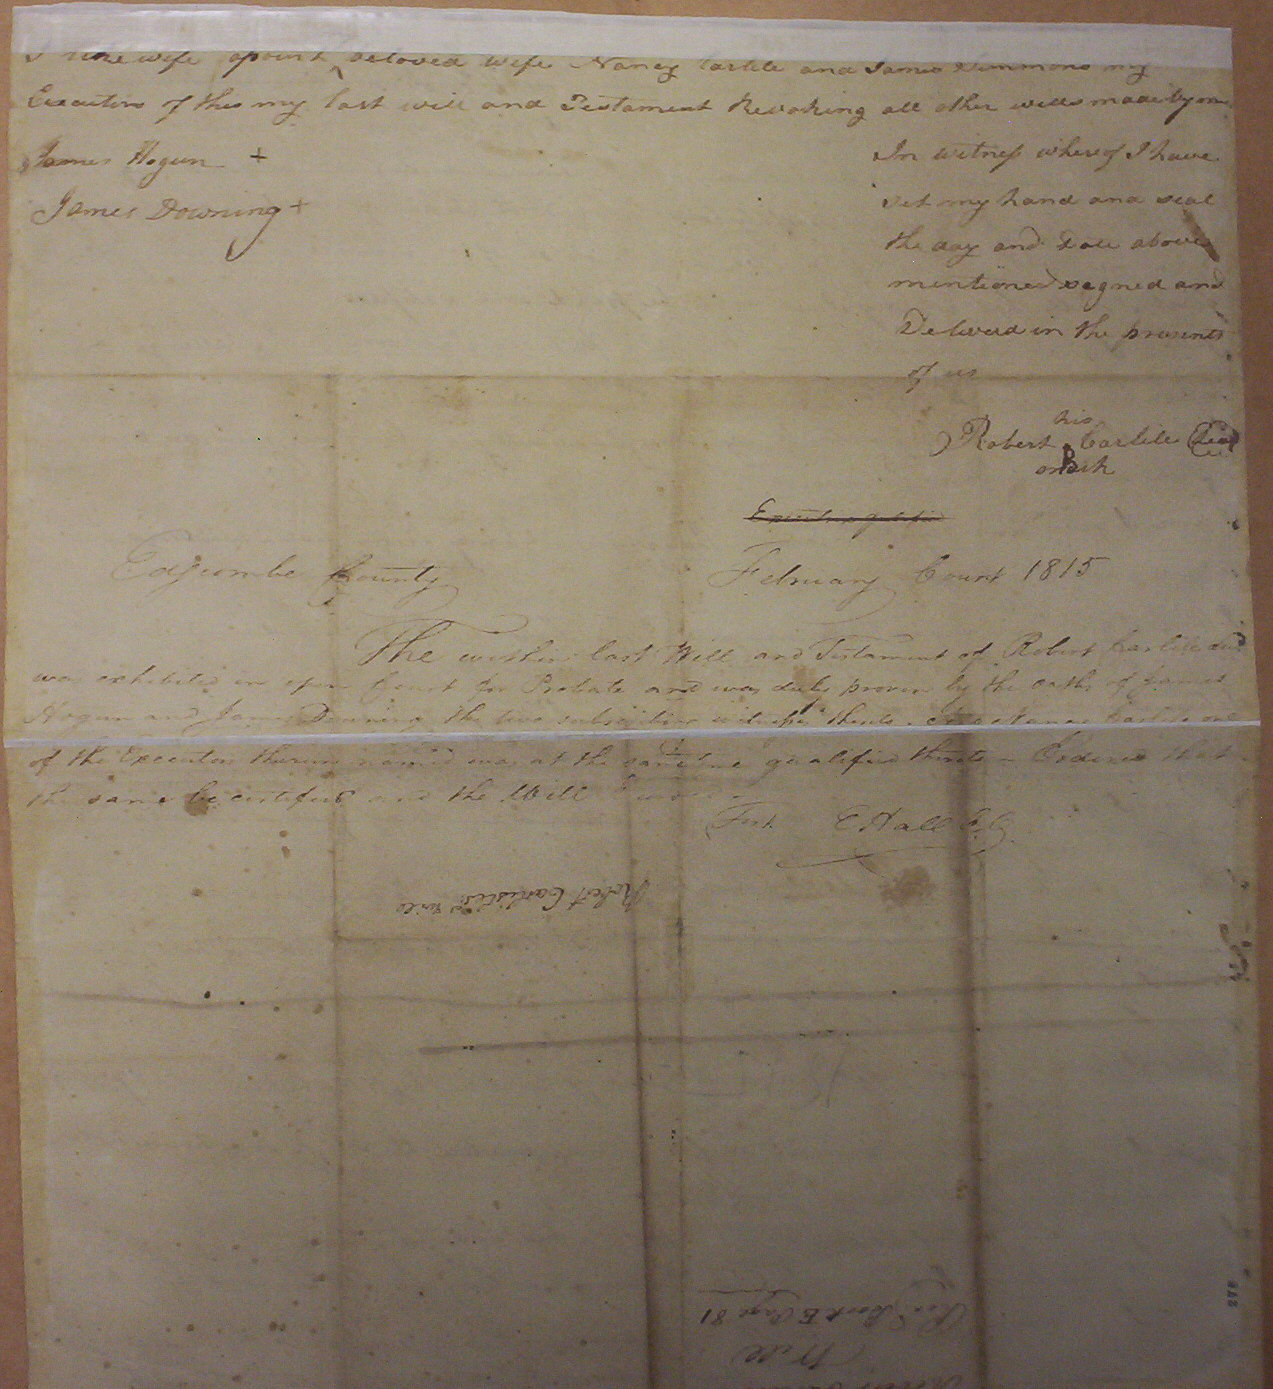 I likewise apoint beloved wife Nancy Carlile and James Simmons my
Executors of this my last will and Testament Revoking all other wills made by me
James Hogun +
James Downing +
In witness whereof I have
set my hand and seal
the day and Date above
mentioned signed and
Deliverd in the presents
of us
his
Robert B Carlile Seal
mark
Edgcombe County
February Court 1815
The within last Will and Testament of Robert Carlile
was exhibited in open Court for Probate and was duly proven by the oaths of James
Hogun and James Downing the two subscribing witnesses thereto Nancy Carlile one
of the Executors therein named was at the same time qualified thereto - Ordered that
the same be certified and the Will
Test. E Hall
Robert Carlisles will
Book E Page 81
Will